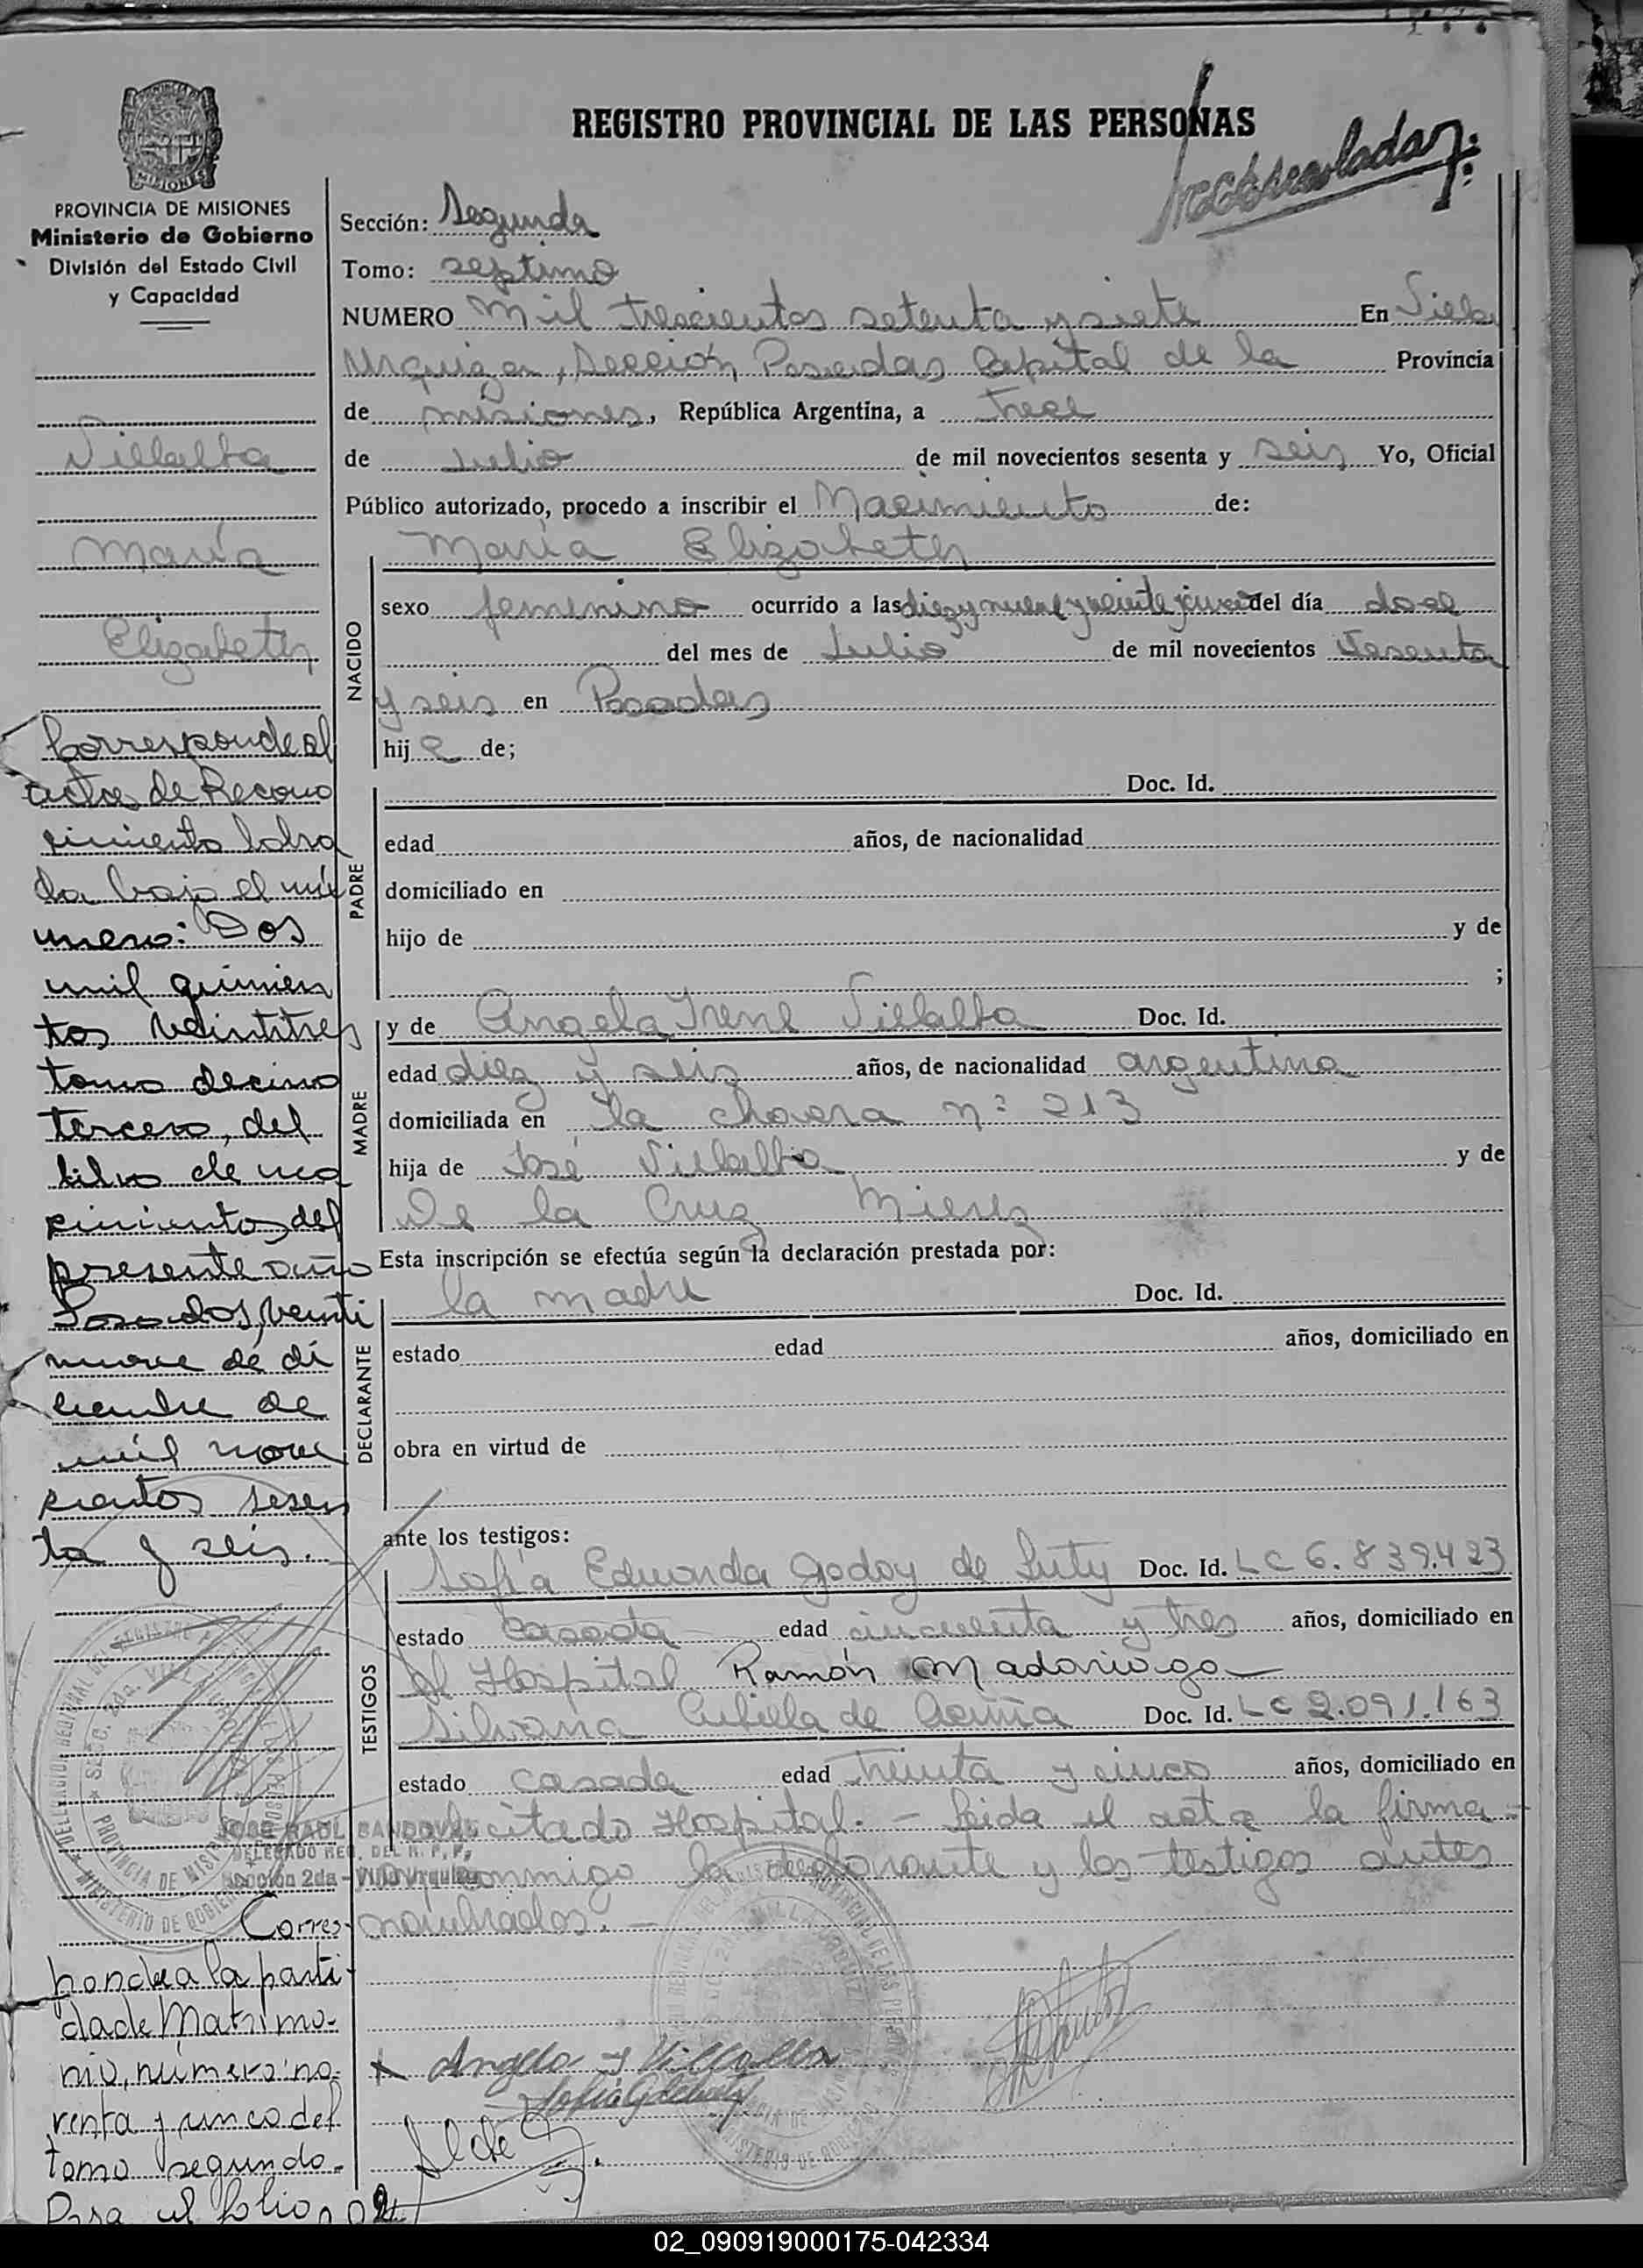 REGISTRO PROVINCIAL DE LAS PERSONAS
MISIONES
PROVINCIA DE MISIONES
Ministerio de Gobierno
División del Estado Civil
y Capacidad
Villalba
María
Elizabeth
Corresponde al
acta de Recono
cimiento labra
da bajo el nú
mero: Dos
mil quinien
tos veintitres
tomo decimo
tercero, del
libro de na
cimientos del
presente año
Posadas, veinti
nueve de di
ciembre de
mil nove
cientos sesen
ta y seis.
JOSE RAUL SANDOVAL
DELEGADO REG. DEL R. P. P.
Sección 2da - Villa Urquiza
Corres-
ponde a la parti-
da de Matrimo-
nio, número: no-
venta y cinco del
tomo segundo.
Pasa al folio
Sección: Segunda
Tomo: septimo
NUMERO Mil trescientos setenta y siete En Villa
Urquiza, Sección Posadas Capital de la Provincia
de misiones, República Argentina, a trece
de Julio de mil novecientos sesenta y seis Yo, Oficial
Público autorizado, procedo a inscribir el Nacimiento de:
María Elizabeth
NACIDO
sexo femenino ocurrido a las diez y nueve y veinte y cinco del día doce
del mes de Julio de mil novecientos sesenta
y seis en Posadas
hija de;
PADRE
Doc. Id.
edad años, de nacionalidad
domiciliado en
hijo de y de
;
MADRE
y de Angela Irene Villalba Doc. Id.
edad diez y seis años, de nacionalidad argentina
domiciliada en la chacra nº 213
hija de José Villalba y de
De la Cruz Mierez
Esta inscripción se efectúa según la declaración prestada por:
DECLARANTE
la madre Doc. Id.
estado edad años, domiciliado en
obra en virtud de
ante los testigos:
TESTIGOS
Sofía Eduarda Godoy de Luty Doc. Id. LC 6.839.423
estado Casada edad cincuenta y tres años, domiciliado en
el Hospital Ramón Madariaga
Silvana Cubilla de Acuña Doc. Id. LC 2.091.163
estado casada edad treinta y cinco años, domiciliado en
el citado Hospital. - Leida el acta la firma-
conmigo la declarante y los testigos antes
nombrados. -
Angela I Villalba
02_090919000175-042334